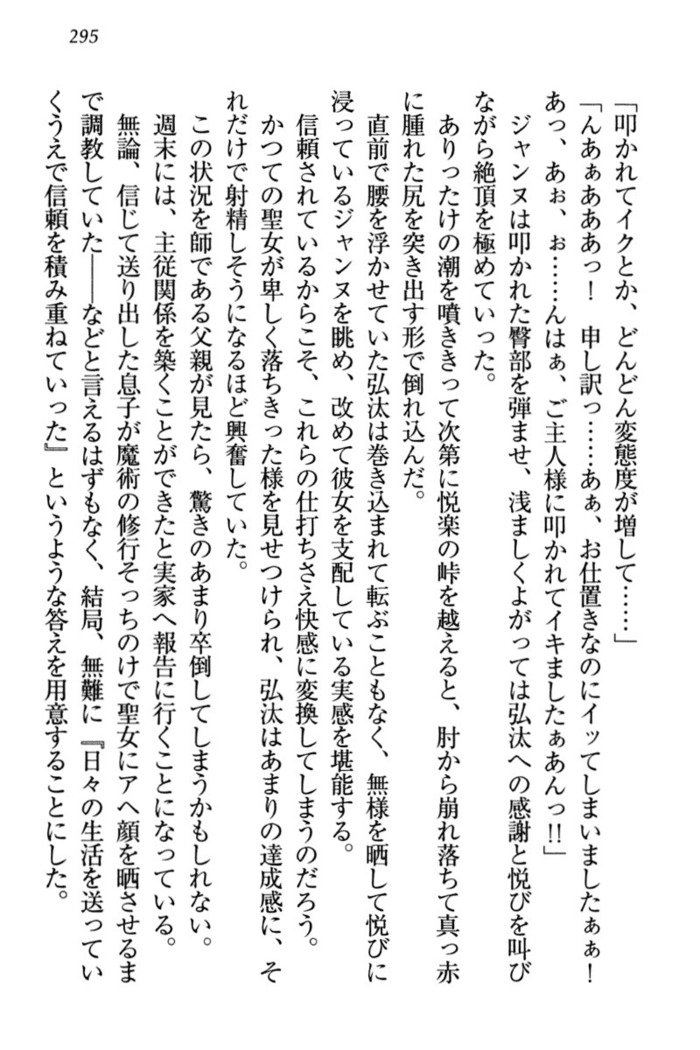 295
「叩かれてイクとか、どんどん変態度が増して……」
「んあぁあああっ！　申し訳っ……あぁ、お仕置きなのにイッてしまいましたぁぁ！
あっ、あぉ、ぉ……んはぁ、ご主人様に叩かれてイキましたぁあんっ!!」
ジャンヌは叩かれた臀部を弾ませ、浅ましくよがっては弘汰への感謝と悦びを叫び
ながら絶頂を極めていった。
ありったけの潮を噴ききって次第に悦楽の峠を越えると、肘から崩れ落ちて真っ赤
に腫れた尻を突き出す形で倒れ込んだ。
直前で腰を浮かせていた弘汰は巻き込まれて転ぶこともなく、無様を晒して悦びに
浸っているジャンヌを眺め、改めて彼女を支配している実感を堪能する。
信頼されているからこそ、これらの仕打ちさえ快感に変換してしまうのだろう。
かつての聖女が卑しく落ちきった様を見せつけられ、弘汰はあまりの達成感に、そ
れだけで射精しそうになるほど興奮していた。
この状況を師である父親が見たら、驚きのあまり卒倒してしまうかもしれない。
週末には、主従関係を築くことができたと実家へ報告に行くことになっている。
無論、信じて送り出した息子が魔術の修行そっちのけで聖女にアへ顔を晒させるま
で調教していた――などと言えるはずもなく、結局、無難に『日々の生活を送ってい
くうえで信頼を積み重ねていった』というような答えを用意することにした。